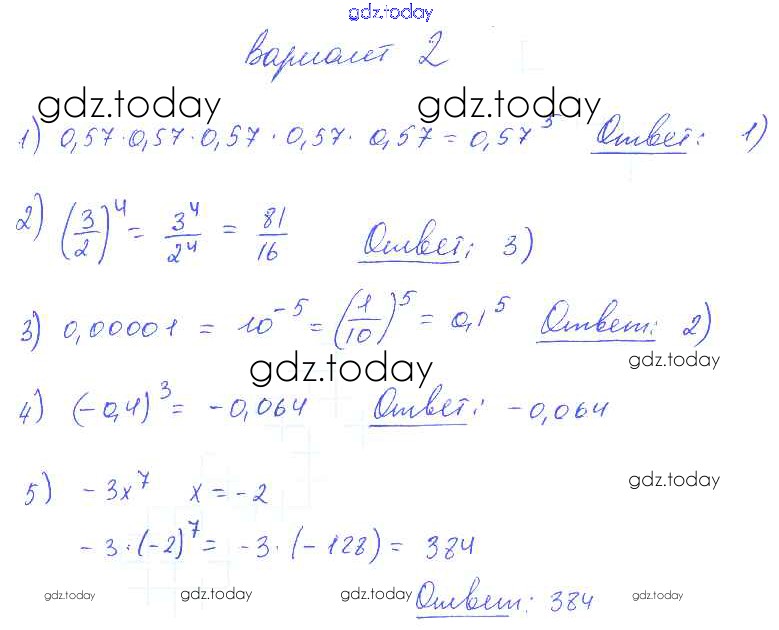 gdz.today
Вариант 2
gdz.today gdz.today
1) 0,57·0,57·0,57·0,57·0,57 = 0,57⁵ Ответ: 1)
2) (3/2)⁴ = 3⁴/2⁴ = 81/16 Ответ: 3)
3) 0,00001 = 10⁻⁵ = (1/10)⁵ = 0,1⁵ Ответ: 2)
gdz.today gdz.today
4) (-0,4)³ = -0,064 Ответ: -0,064
gdz.today
5) -3x⁷ x = -2
-3·(-2)⁷ = -3·(-128) = 384
gdz.today gdz.today gdz.today gdz.today
Ответ: 384